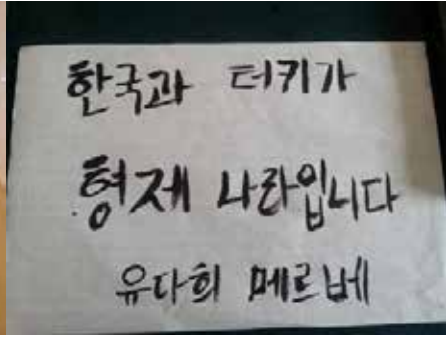 한국과 터키가
형제 나라입니다
유다희 메르베